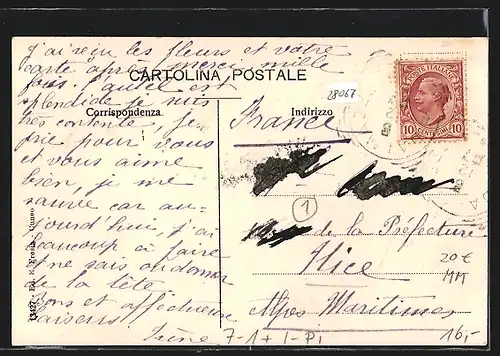 j'ai reçu les fleurs et votre
carte après merci mille
fois. l'autel est
splendide je suis
très contente, je
prie pour vous
et vous aime
bien, je me
sauve car au-
jourd'hui, j'ai
beaucoup à faire
et ne sais où donner
de la tête.
Bons et affectueux
baisers
Irène
CARTOLINA POSTALE
Corrispondenza
Indirizzo
28067
France
POSTE ITALIANE
10 CENTESIMI 10
1
de la Préfecture
Nice
Alpes Maritimes
20€
MM
16,-
7-1+1-P.